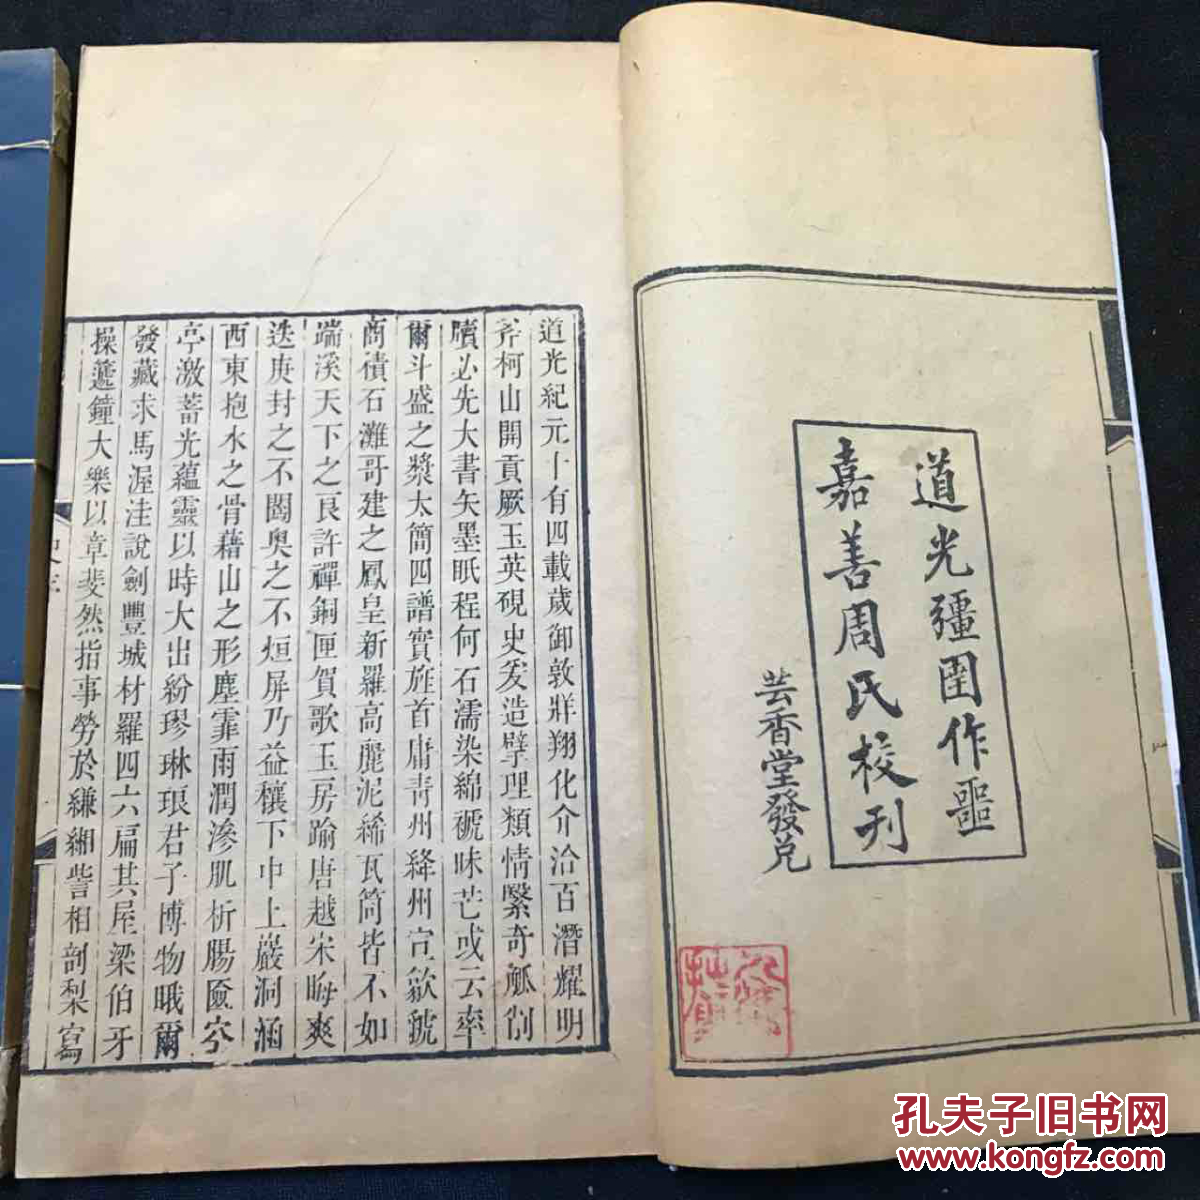 道光彊圉作噩
嘉善周氏校刋
芸香堂發兑
道光紀元十有四載歲御敦牂翔化介洽百潛耀明
斧柯山開貢厥玉英硯史爰造擘理類情繄奇觚削
牘必先大書矢墨眂程何石濡染綿褫昧芒或云率
爾斗盛之漿太簡四譜實旌首庸青州絳州宣歙虢
商積石灘哥建之鳳皇新羅高麗泥絺瓦筒皆不如
端溪天下之良許禪銅匣賀歌玉房踰唐越宋晦爽
迭庚封之不閟奥之不烜屏乃益穰下中上巖洞涵
西東抱水之骨藉山之形塵霏雨潤滲肌析腸匳穷
亭激蓄光蘊靈以時大出紛璆琳琅君子博物哦爾
發藏求馬渥洼說劍豐城材羅四六扁其屋梁伯牙
操薳鐘大樂以章斐然指事勞於縑緗訾相剖梨寫
孔夫子旧书网
www.kongfz.com